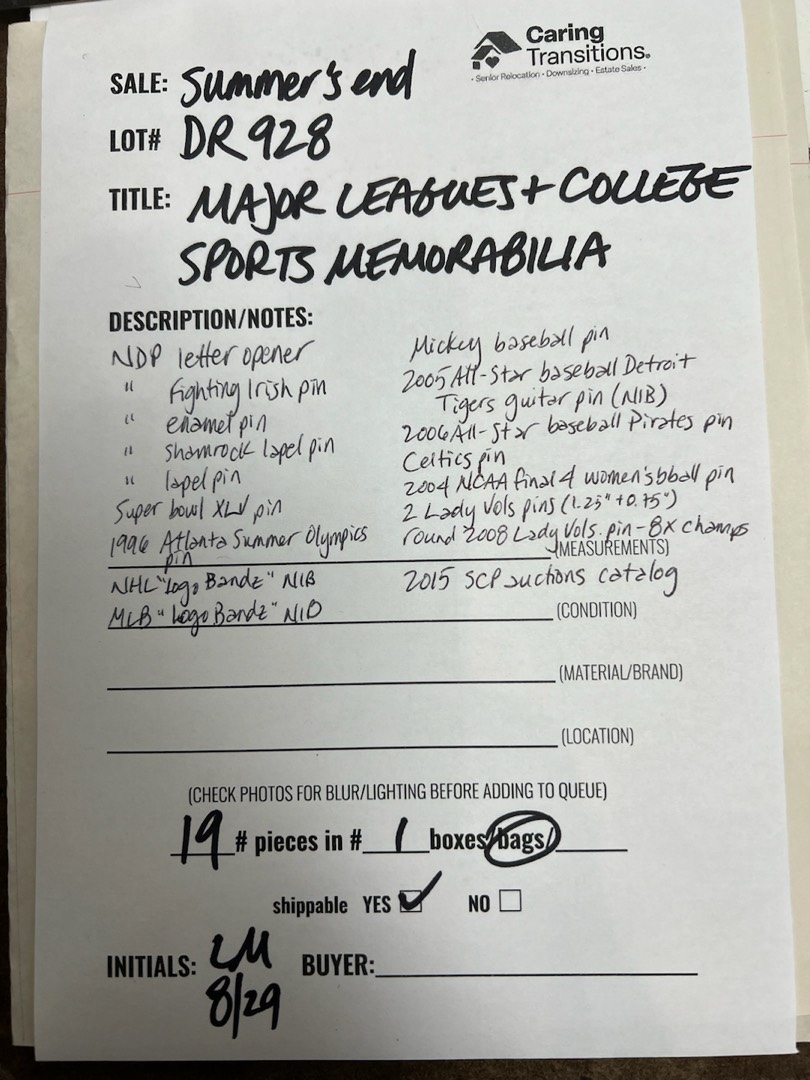 Caring
Transitions®
• Senior Relocation • Downsizing • Estate Sales •
SALE: Summer's end
LOT# DR928
TITLE: MAJOR LEAGUES + COLLEGE
SPORTS MEMORABILIA
DESCRIPTION/NOTES:
NDP letter opener
" Fighting Irish pin
" enamel pin
" shamrock lapel pin
" lapel pin
Super bowl XLV pin
1996 Atlanta Summer Olympics
pin
NHL "Logo Bandz" NIB
MLB "Logo Bandz" NIB
Mickey baseball pin
2005 All-Star baseball Detroit
Tigers guitar pin (NIB)
2006 All-Star baseball Pirates pin
Celtics pin
2004 NCAA final 4 women's bball pin
2 Lady Vols pins (1.25" + 0.75")
round 2008 Lady Vols. pin - 8x champs
(MEASUREMENTS)
2015 SCP auctions catalog
(CONDITION)
(MATERIAL/BRAND)
(LOCATION)
(CHECK PHOTOS FOR BLUR/LIGHTING BEFORE ADDING TO QUEUE)
19 # pieces in # 1 boxes/bags/
shippable YES NO
INITIALS: LM BUYER:
8/29